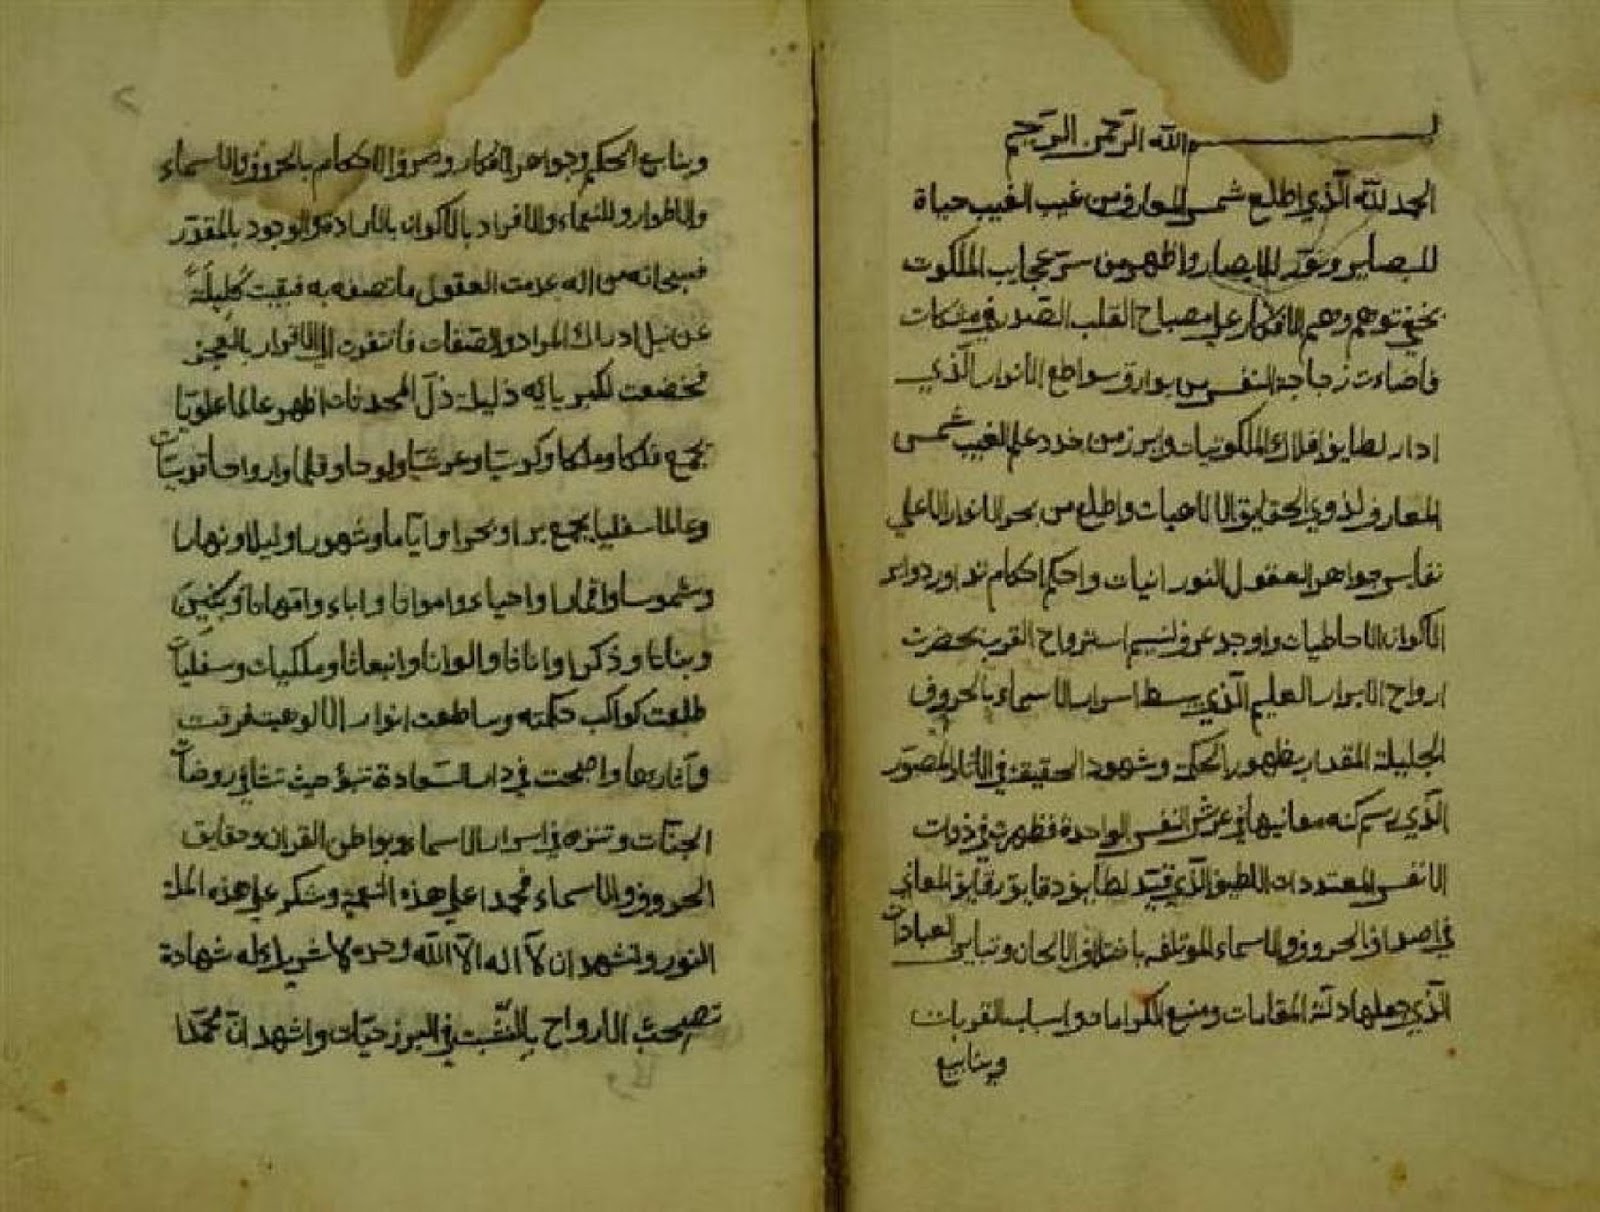 بسم الله الرحمن الرحيم
الحمد لله الذي اطلع شمس المعارف من غيب الغيب حياة
للبصاير ونور للابصار واظهر من سر عجايب الملكوت
توهم وهم الافكار على مصباح القلب الصدر في مشكات
فاضاءت زجاجة النفس من بوارق سواطع الأنوار الذي
ادار لطايف افلاك الملكوتيات وابرز من خدد علم الغيب شمس
المعارف لذوي الحقايق الالاهيات واطلع من بحر الاعلي
نفايس جواهر العقول النورانيات واحكم احكام تداور دواير
الاكوان الاحاطيات واوجد عرف نسيم استرواح القرب بحضرت
ارواح الابرار العليم الذي بسط اسرار الاسماء بالحروف
الجليلة المقدار بظهور الحكمة وشهود الحقيقة في المصور
الذي كنه معانيها في عرش النفس الواحدة فظهرت في ذوات
الانفس المعتددات اللطيف الذي قيد لطايف دقايق رقايق المعاني
في اصداف الحروف والاسماء الموتلفه باختلاف الالحان وتباين العبادات
الذي جعلها ادلة المقامات ومنبع الكرامات واسباب القربات
وينابيع
وينابيع الحكم وجواهر الافكار وصرف الاحكام بالحروف والاسماء
والاطوار والنعماء والافراد بالاكوان بالارادة والوجود بالمقدور
فسبحانه من اله عدمت العقول ما تصفه به فبقيت كليلة
عن نيل ادراك المراد والصفات فانتفوت الي الاقرار بالعجز
فخضعت لكبريايه ذليلة ذل المحدثات اظهر عالما علويات
بجمع فلكا وملكا وكرسيا وعرشيا ولوحا وقلما وارواحا
وعالما سفليا بجمع برا وبحرا واياما وشهورا وليلا ونهارا
وشموسا واقمارا واحياء وامواتا واباء وامهاتا وبنين
وبناتا وذكرا واناثا والوانا وانبعاثا وملكيات وسفليات
طلعت كواكب حكمته وساطعت انوار الالوهية فرقت
واصبحت في دار السعادة تبؤ حيث تشا في روضات
الجنات وتنزه في اسرار الاسماء وبواطن القران وحقايق
الحروف والاسماء فحمدا علي هذه النعمة وشكر علي هذه الملة
النور ونشهد ان لا اله الا الله وحده لا شريك له شهادة
الارواح بالتثبت في البرزخيات واشهد ان محمدا